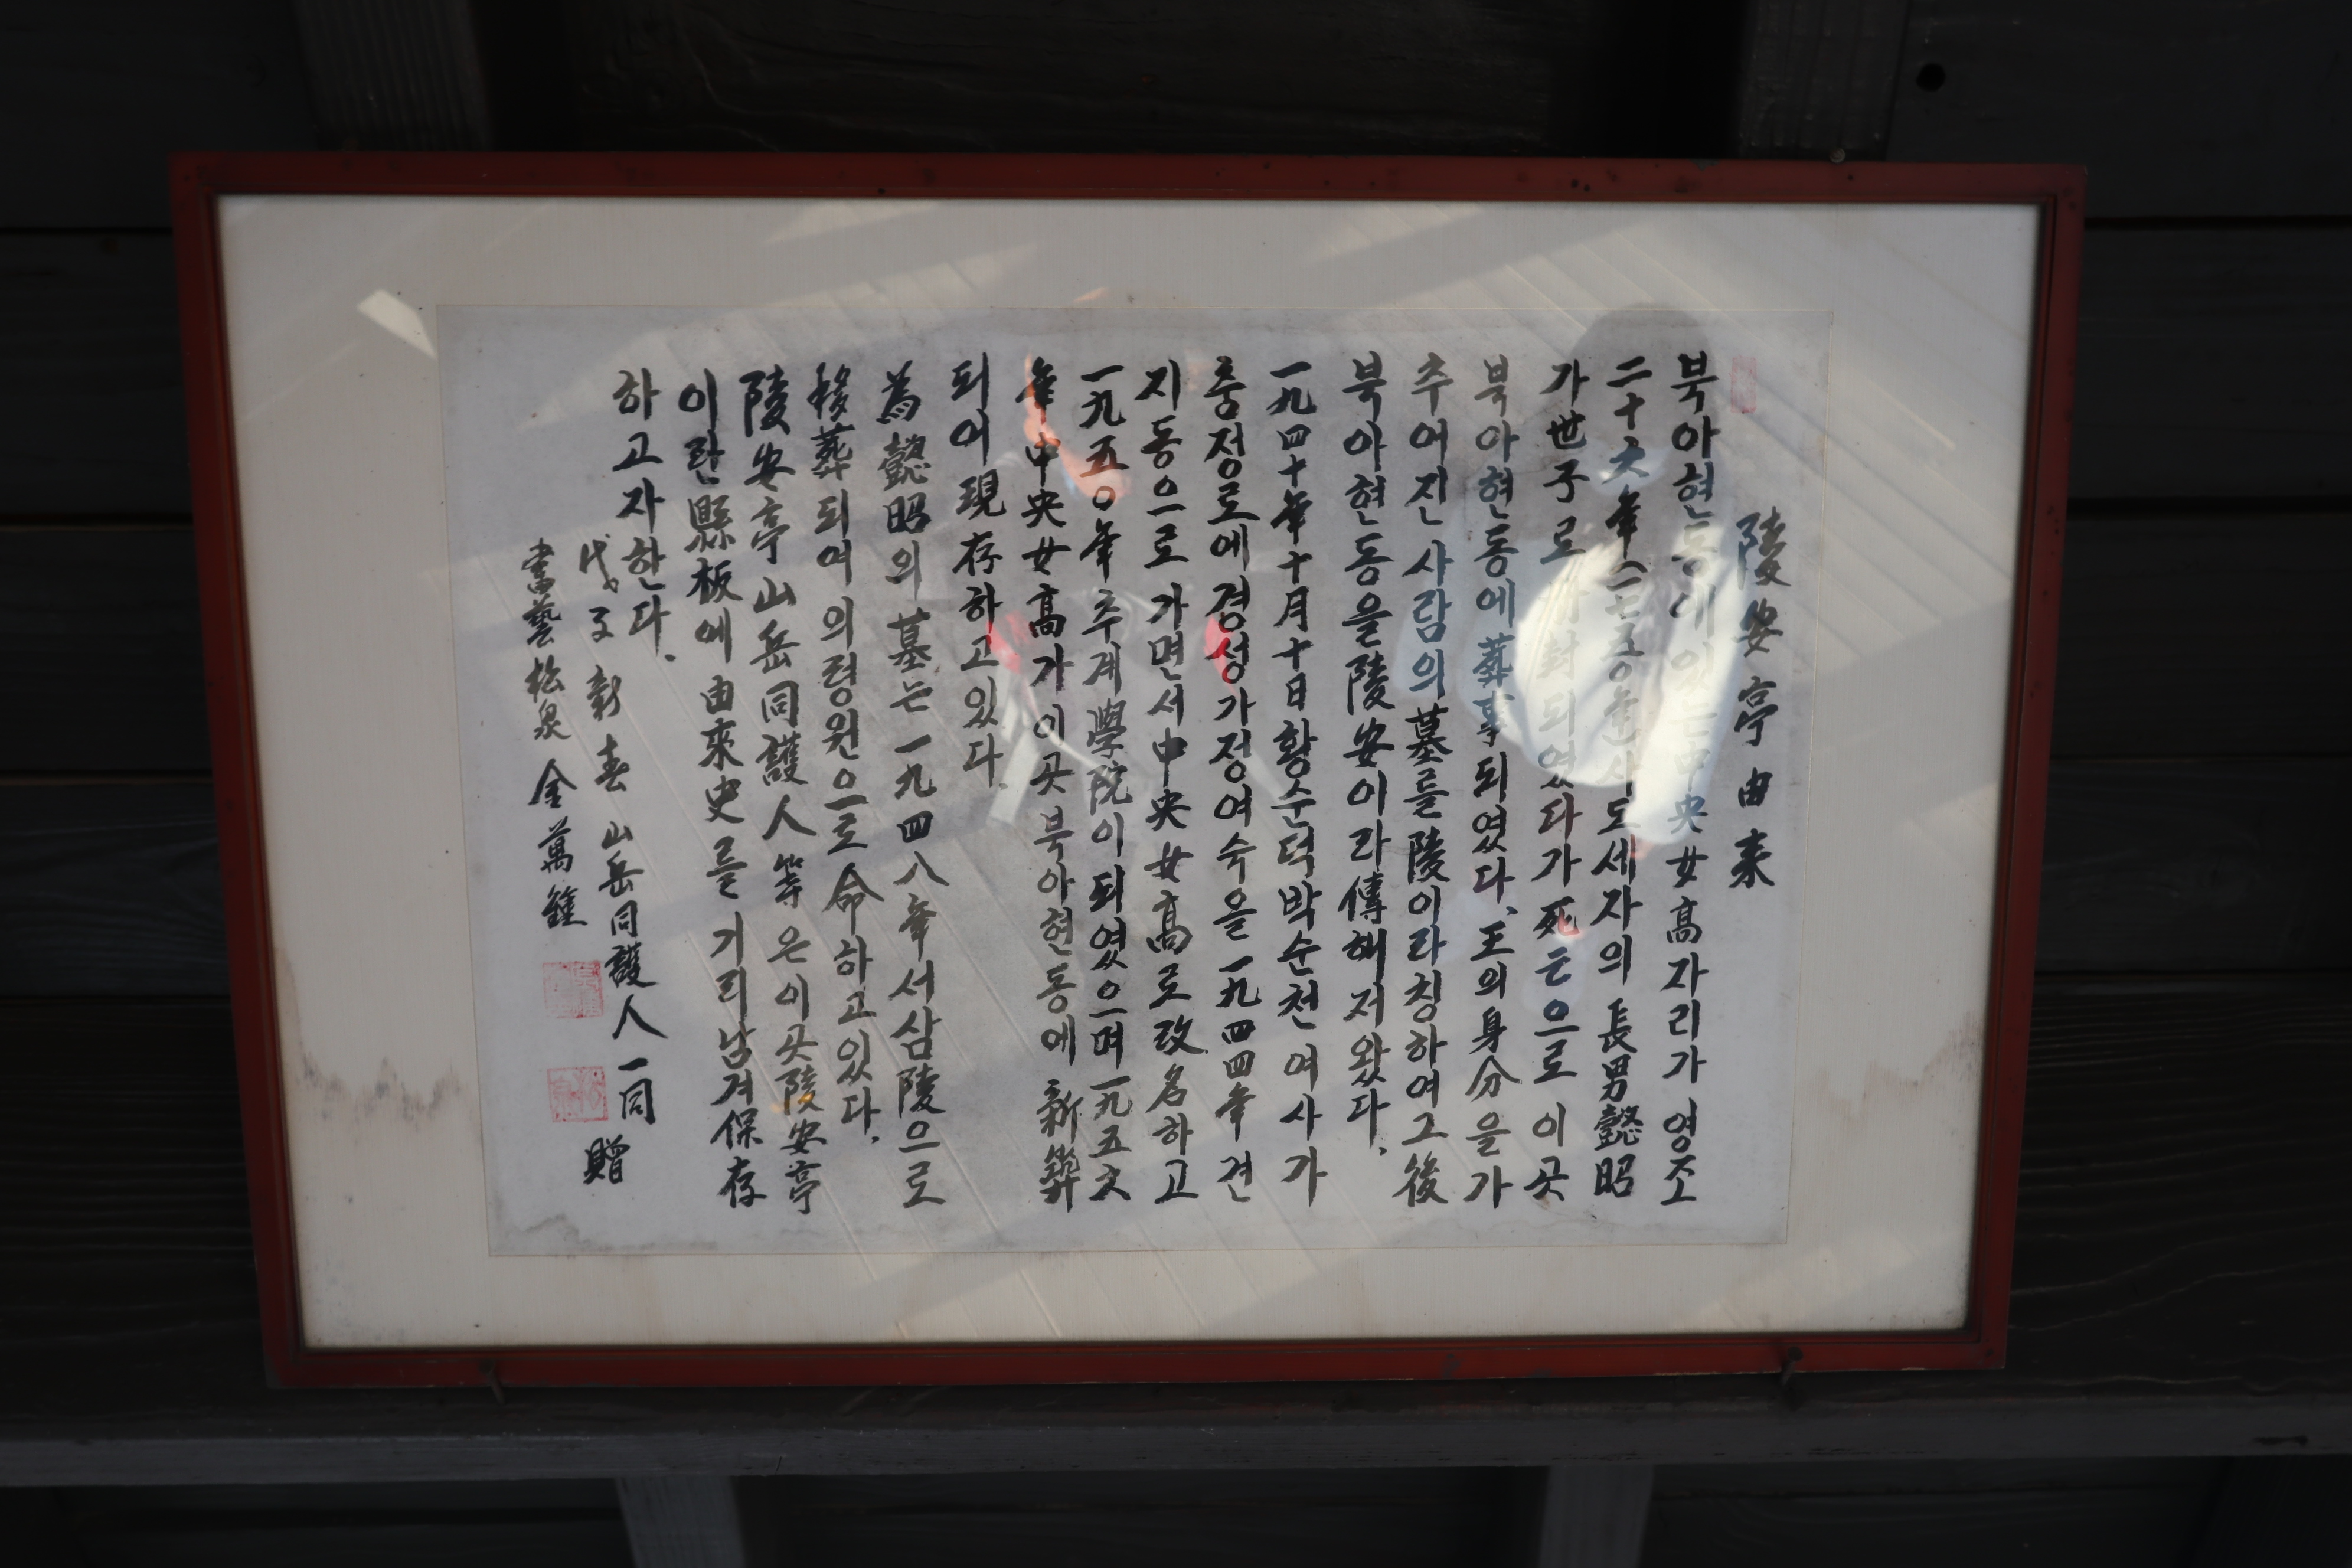 陵安亭由来
북아현동에 있는 中央女高자리가 영조
二十六年(一七五○年)사도세자의 長男懿昭
가 世子로 封되였다가 死亡으로 이곳
북아현동에 葬事되였다、王의 身分을 가
추어진 사람의 墓를 陵이라 칭하여 그 後
북아현동을 陵安이라 傳해저왔다.
一九四十年十月十日 황순덕 박순천 여사가
충정로에 경성가정여숙을 一九四四年 견
지동으로 가면서 中央女高로 改名하고
一九五○年 추계學院이 되였으며 一九五六
年 中央女高가 이곳 북아현동에 新築
되여 現存하고 있다.
為懿昭의 墓는 一九四八年 서삼陵으로
移葬되여 의령원으로 命하고 있다.
陵安亭山岳同護人等은 이곳 陵安亭
이란 縣板에 由來史를 기리 남겨 保存
하고자 한다.
戊子 新春 山岳同護人一同 贈
書藝 松泉 金萬鍾